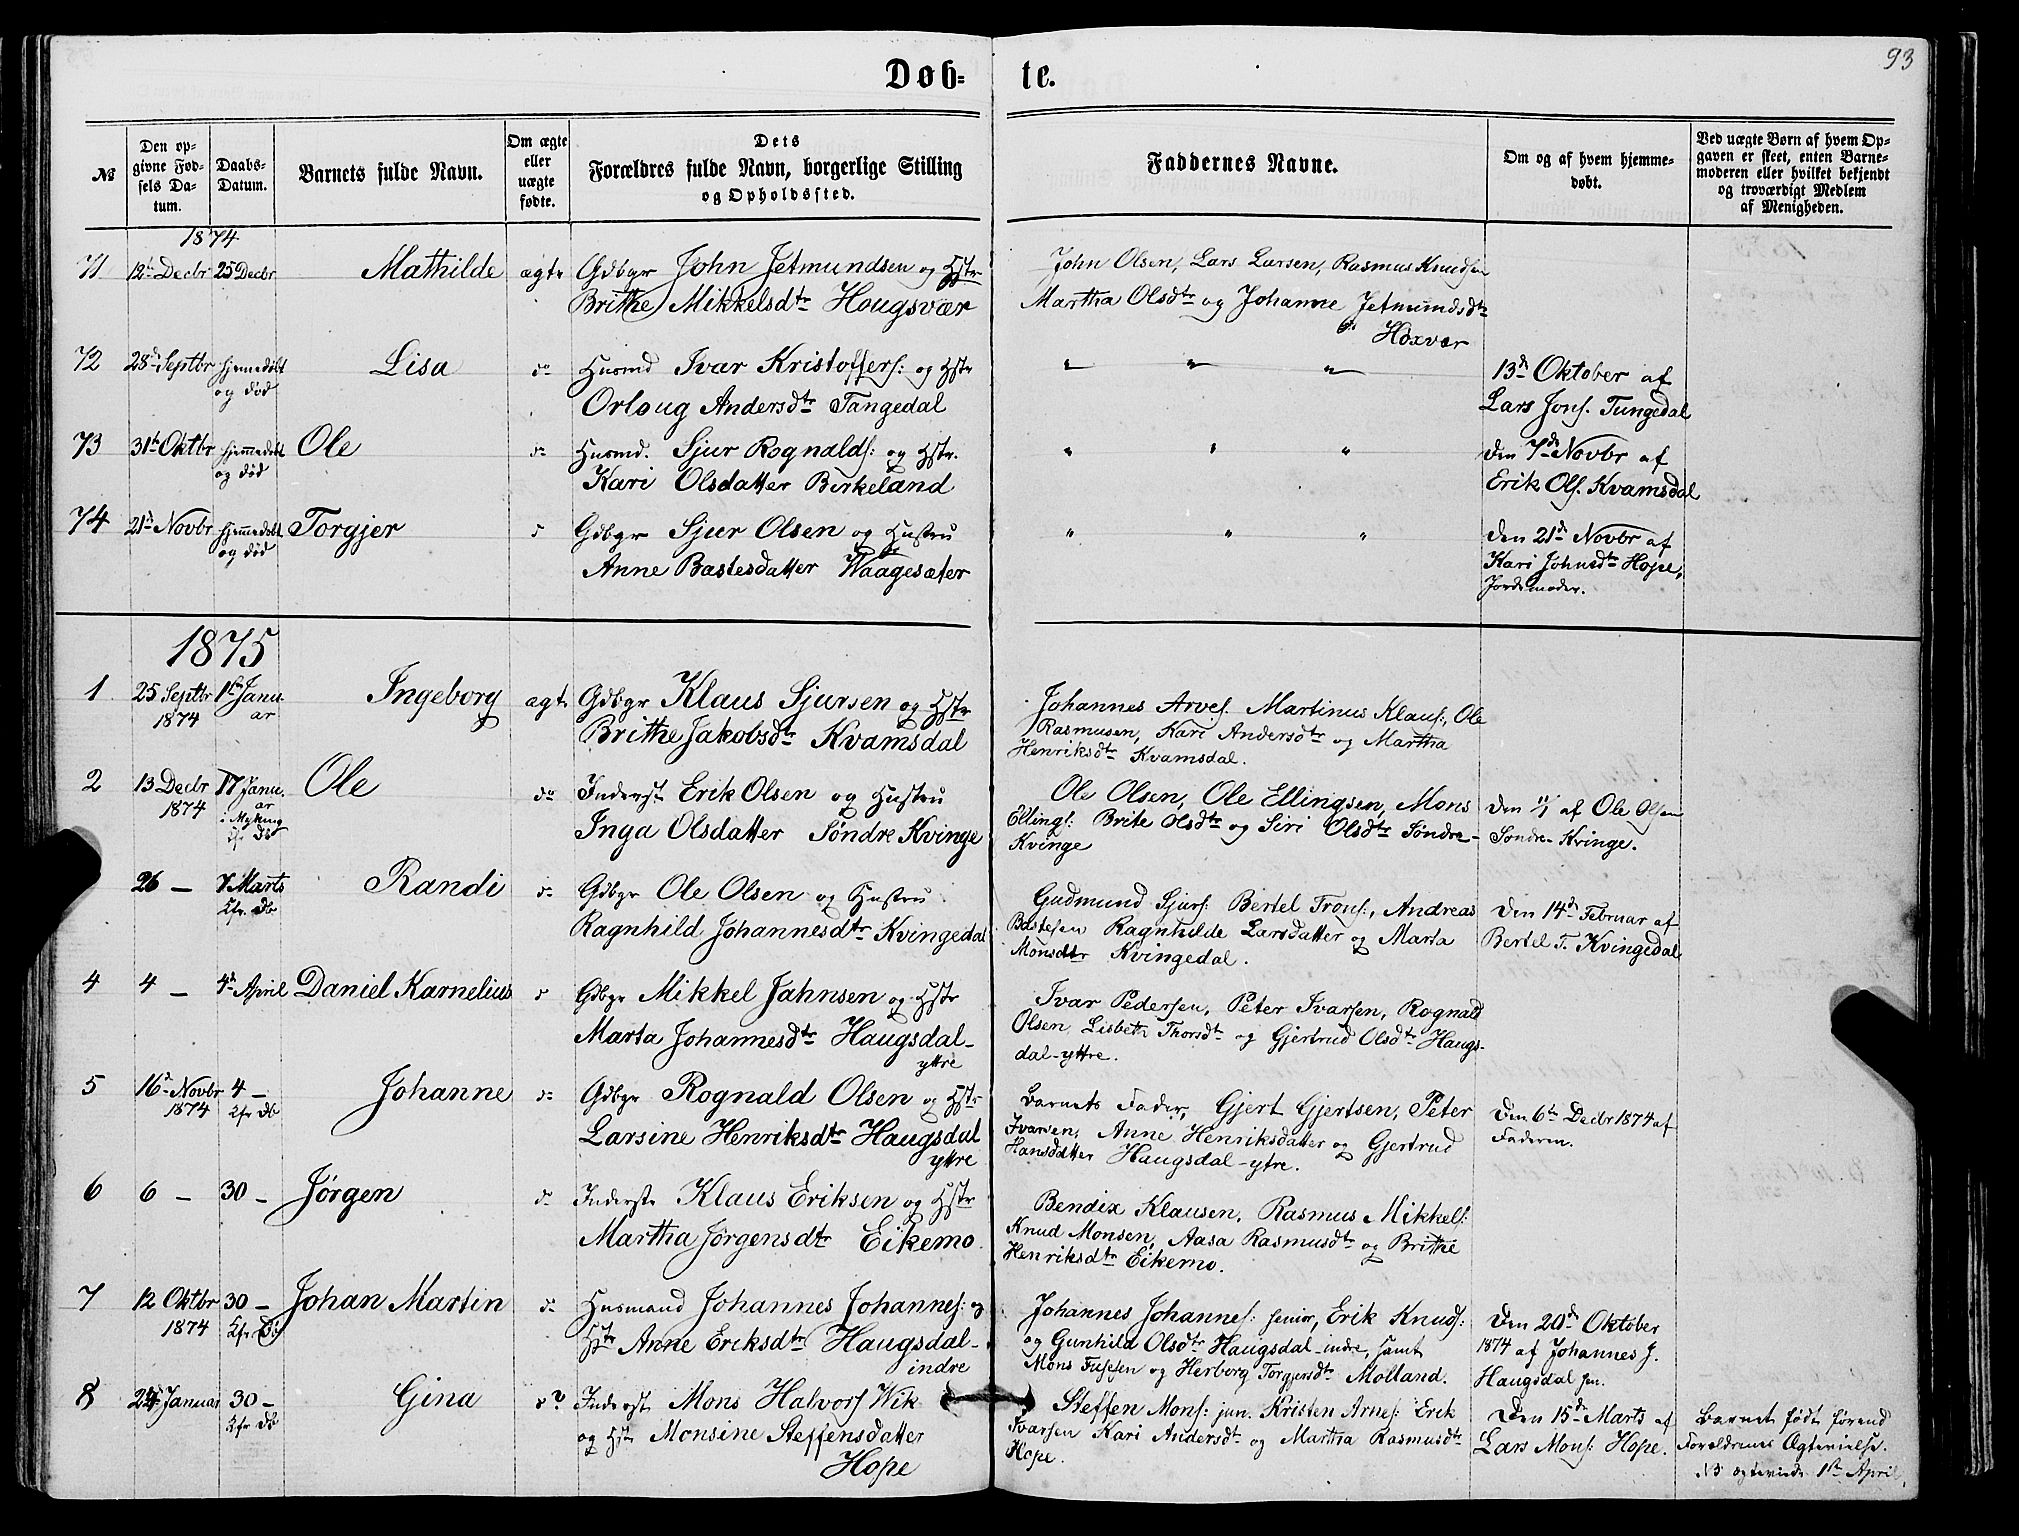 93
Døb-
te.
№
Den op-
givne Fød-
sels Da-
tum.
Daabs-
Datum.
Barnets fulde Navn.
Om ægte
eller
uægte
fødte.
Dets
Forældres fulde Navn, borgerlige Stilling
og Opholdssted.
Faddernes Navne.
Om og af hvem hjemme-
døbt.
Ved uægte Børn af hvem Op-
gaven er skeet, enten Barne-
moderen eller hvilket bekjendt
og troværdigt Medlem
af Menigheden.
1874
71 12te Decbr 25 Decbr Mathilde ægte Gdbgr John Jetmundsen og Hstr
Brithe Mikkelsdtr Hougsvær
John Olsen, Lars Larsen, Rasmus Knudsen
Martha Olsdtr og Johanne Jetmundsdtr
Hoxvær
72 28de Septbr hjemmedøbt
og død
Lisa do Husmd Ivar Kristoffers: og Hstr
Orloug Andersdtr Tangedal
" " "
13de Oktober af
Lars Jons. Tungedal
73 31te Oktbr hjemmedøbt
og død
Ole do Husmd. Sjur Rognalds: og Hstr.
Kari Olsdatter Birkeland
" " "
den 7de Novbr af
Erik Ols. Kvamsdal
74 21de Novbr hjemmedøbt
og død
Torgjer d Gdbgr Sjur Olsen og Hustru
Anne Bastesdatter Waagesæter
" " "
den 21de Novbr af
Kari Johnsdtr Hope,
Jordemoder.
1875
1 25 Septbr
1874
1ste Janu-
ar
Ingeborg ægte Gdbgr Klaus Sjursen og Hstr
Brithe Jakobsdtr Kvamsdal
Johannes Arves. Martinus Klaus:, Ole
Rasmusen, Kari Andersdtr og Martha
Henriksdtr Kvamsdal.
2 13 Decbr
1874
17 Janu.
ar
i Myking
Ole do Inderst Erik Olsen og Hustru
Inga Olsdatter Søndre Kvinge
Ole Olsen, Ole Ellingsen, Mons
Ellings: Brite Olsdtr og Siri Olsdtr Søndre-
Kvinge
den 1/1 af Ole Olsen
Søndre-Kvinge.
26 — 7 Marts
Kfr. Db
Randi do Gdbgr Ole Olsen og Hustru
Ragnhild Johannesdtr Kvingedal
Gudmund Sjurs: Bertel Trons:, Andreas
Bastesen Ragnhilde Larsdatter og Marta
Monsdtr Kvingedal.
Den 14de Februar af
Bertel T. Kvingedal
4 4 — 4de April Daniel Karnelius d Gdbgr Mikkel Jahnsen og Hstr
Marta Johannesdtr Haugsdal-
yttre
Ivar Pedersen, Peter Ivarsen, Rognald
Olsen, Lisbeth Thorsdtr og Gjertrud Olsdtr Haugs-
dal-yttre.
5 16de Novbr
1874
4 —
Kfr Db
Johanne do Gdbgr Rognald Olsen og Hstr
Larsine Henriksdtr Haugsdal
yttre
Barnets Fader, Gjert Gjertsen, Peter
Ivarsen, Anne Henriksdatter og Gjertrud
Hansdatter Haugsdal-ytre.
Den 6te Decbr 1874 af
Faderen.
6 6 — 30 — Jørgen do Inderste Klaus Eriksen og Hstr
Martha Jørgensdtr Eikemo
Bendix Klausen, Rasmus Mikkels:
Knud Monsen, Aasa Rasmusdtr og Brithe
Henriksdtr Eikemo.
7 12 Oktbr
1874
30 —
Kfr Db
Johan Martin do Husmand Johannes Johannes: og
Hstr Anne Eriksdtr Haugsdal-
indre
Johannes Johannes: senior, Erik Knuds:
og Gunhild Olsdtr Haugsdal-indre, samt
Mons Fussen og Herborg Torgjersdtr Molland.
Den 20de Oktober
1874 af Johannes J.
Haugsdal sen.
8 24 Januar 30 —
Kfr Db
Gina do Inderst Mons Halvors Wik
og Hstr Monsine Steffensdatter
Hope
Steffen Mons: jun. Kristen Arnes: Erik
Ivarsen Kari Andersdtr og Martha Rasmusdtr
Hope.
Den 15de Marts af
Lars Mons: Hope.
Barnet født førend
Forældrenes Ægtevielse.
NB ægteviede 1ste April,